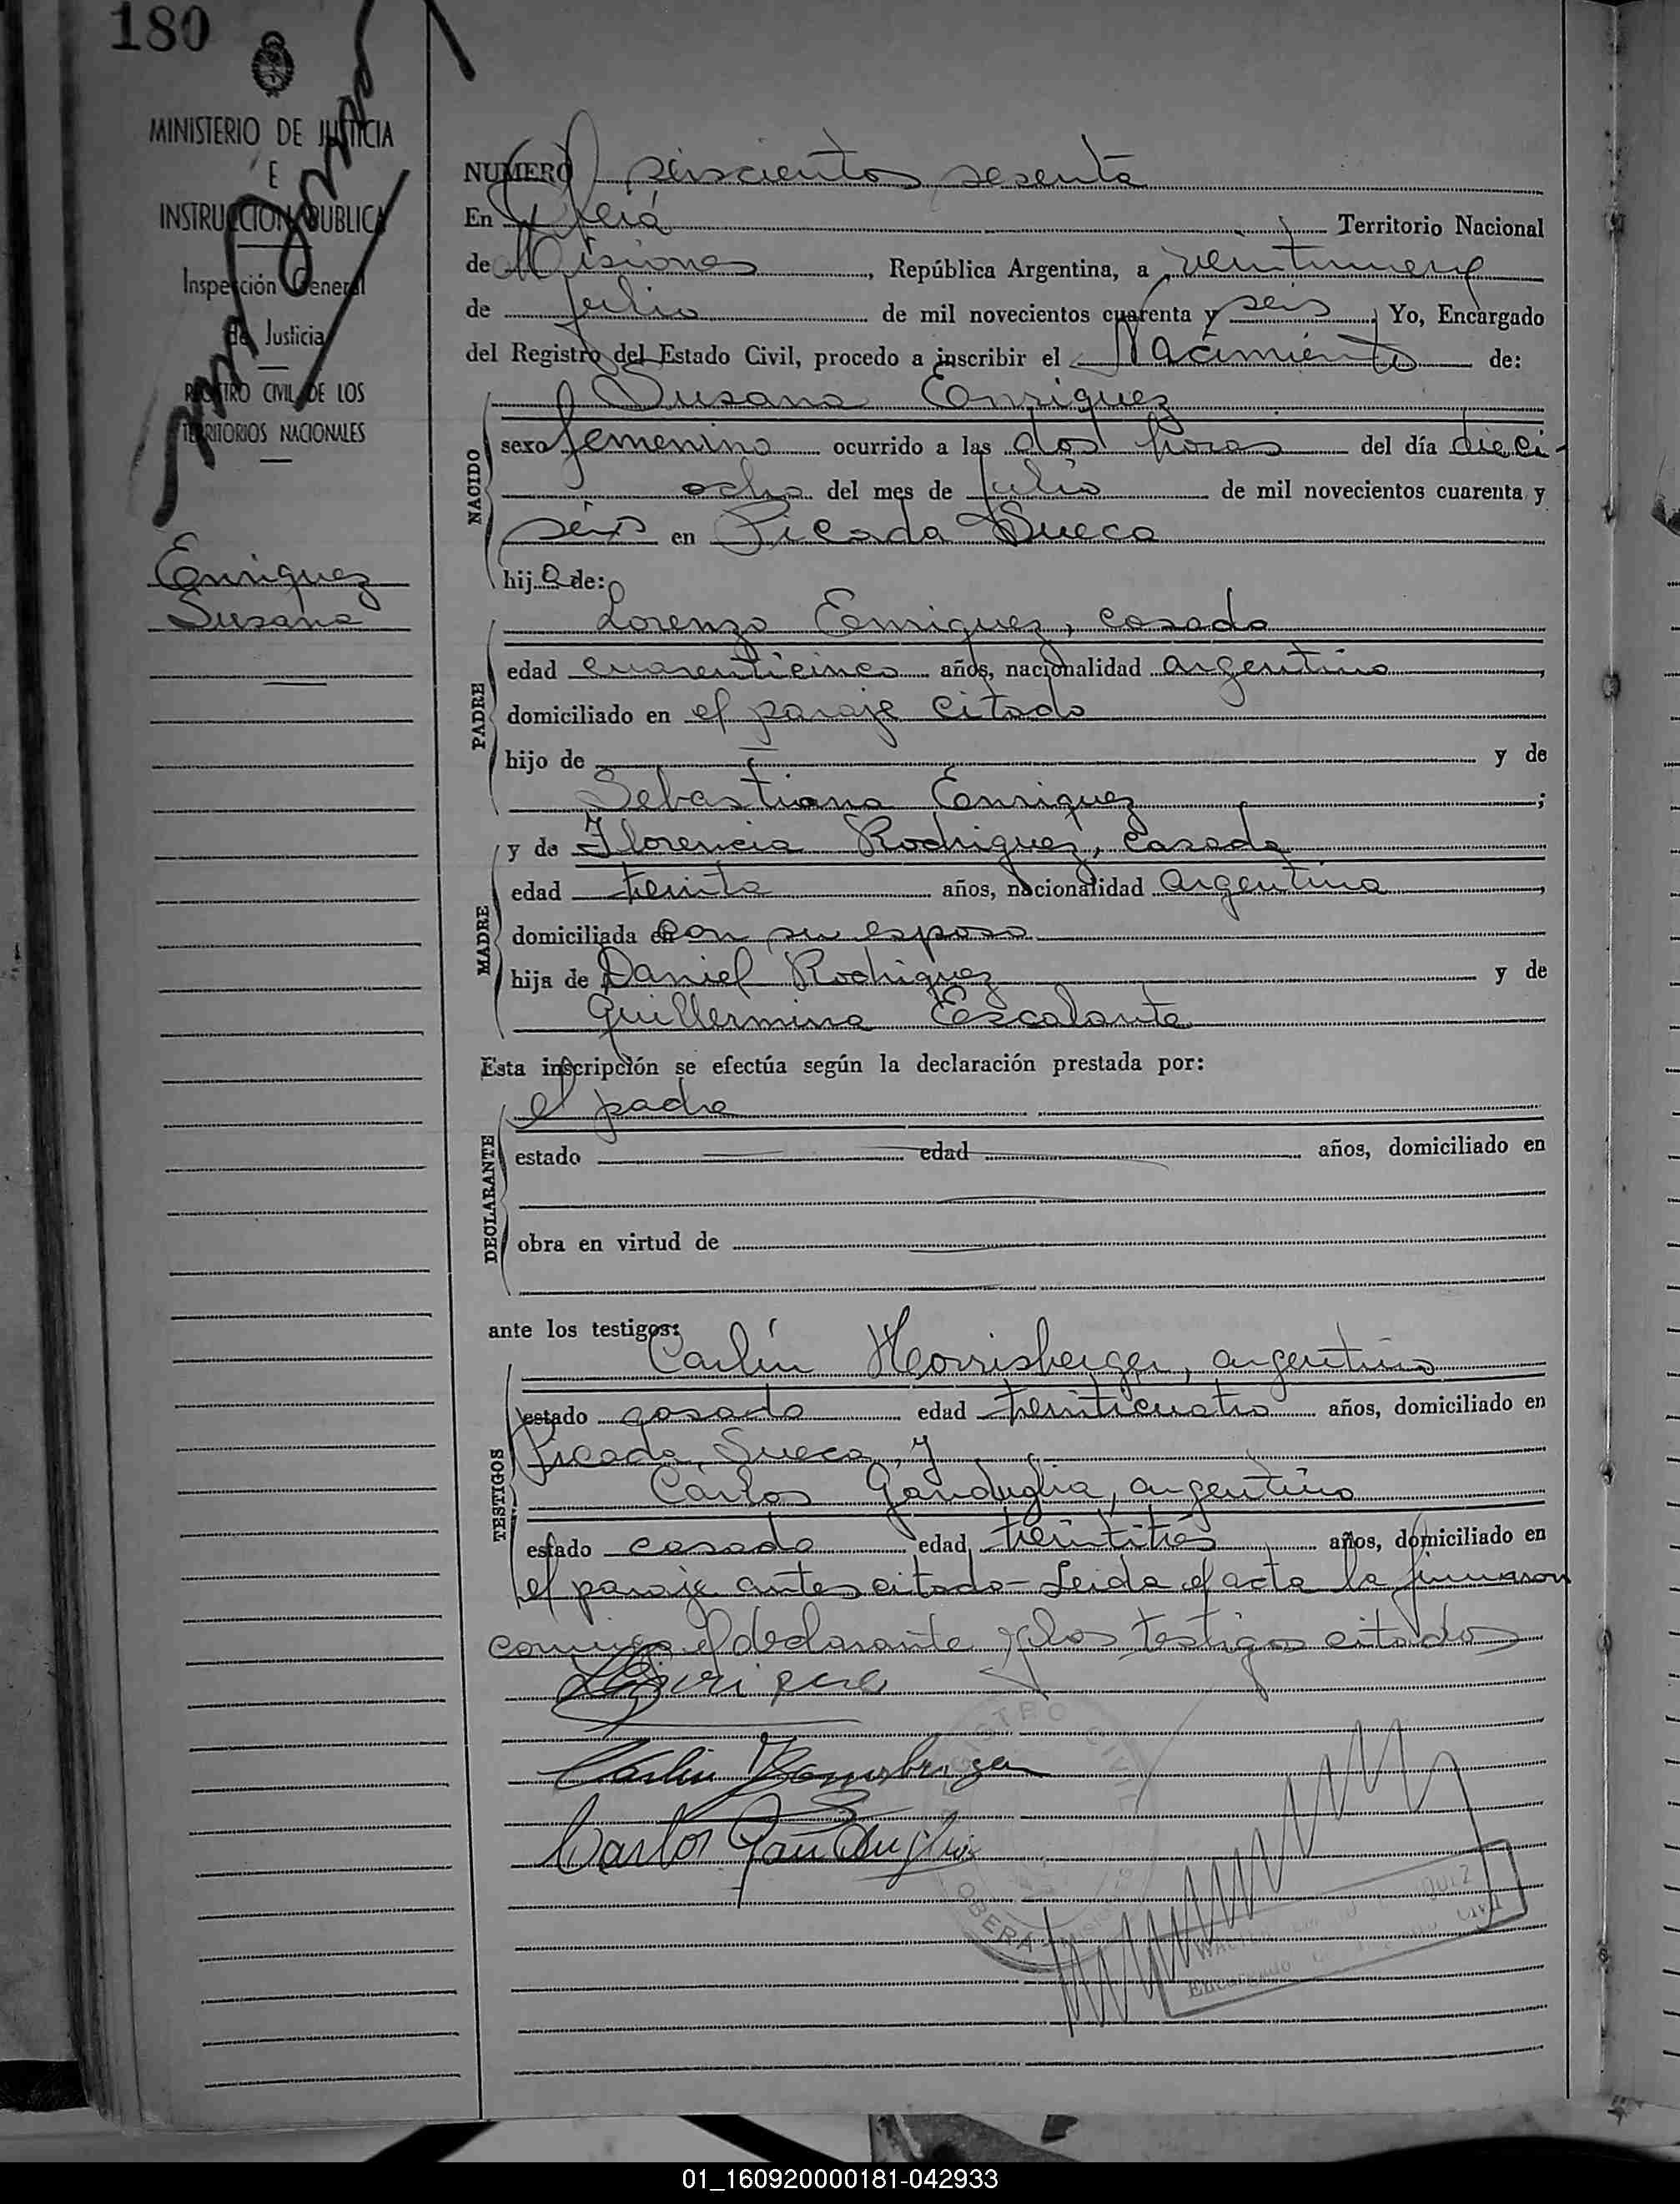 180
MINISTERIO DE JUSTICIA
E
INSTRUCCION PUBLICA
Inspección General
de Justicia
REGISTRO CIVIL DE LOS
TERRITORIOS NACIONALES
Enriquez
Susana
NUMERO seiscientos sesenta
En Oberá Territorio Nacional
de Misiones, República Argentina, a veintinueve
de julio de mil novecientos cuarenta y seis, Yo, Encargado
del Registro del Estado Civil, procedo a inscribir el Nacimiento de:
NACIDO
Susana Enriquez
sexo femenino ocurrido a las dos horas del día dieci-
ocho del mes de julio de mil novecientos cuarenta y
seis en Picada Sueca
hija de:
PADRE
Lorenzo Enriquez, casado
edad cuarenticinco años, nacionalidad argentino,
domiciliado en el paraje citado
hijo de — y de
Sebastiana Enriquez;
MADRE
y de Florencia Rodriguez, casada
edad treinta años, nacionalidad argentina,
domiciliada en con su esposo
hija de Daniel Rodriguez y de
Guillermina Escalante
Esta inscripción se efectúa según la declaración prestada por:
DECLARANTE
el padre
estado edad años, domiciliado en
obra en virtud de
ante los testigos:
TESTIGOS
Carlín Horrisberger, argentino
estado casado edad treinticuatro años, domiciliado en
Picada Sueca, y
Carlos Ganduglia, argentino
estado casado edad treintitres años, domiciliado en
el paraje antes citado - Leida el acta la firmaron
conmigo el declarante y los testigos citados
Carlin
Carlos Ganduglia
REGISTRO CIVIL
OBERA
Encargado
01_160920000181-042933